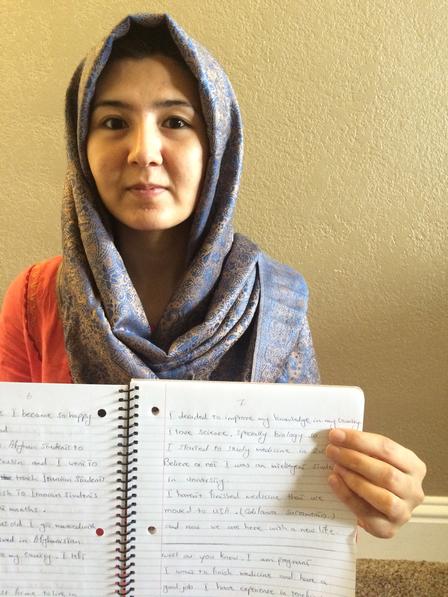 6
I became so happy
Afghan students to
and I went to
teach Iranian students
to Iranian students
months.
old. I got married
in Afghanistan.
my study. I
7
I decided to improve my knowledge in my country
I love science, specially biology so
I started to study medicine in
Believe or not I was an intelligent student
in university.
I haven't finished medicine then we
moved to USA. (California Sacramento)
and now we are here with a new life.
well as you know. I am pregnant
I want to finish medicine and have a
good job. I have experience in